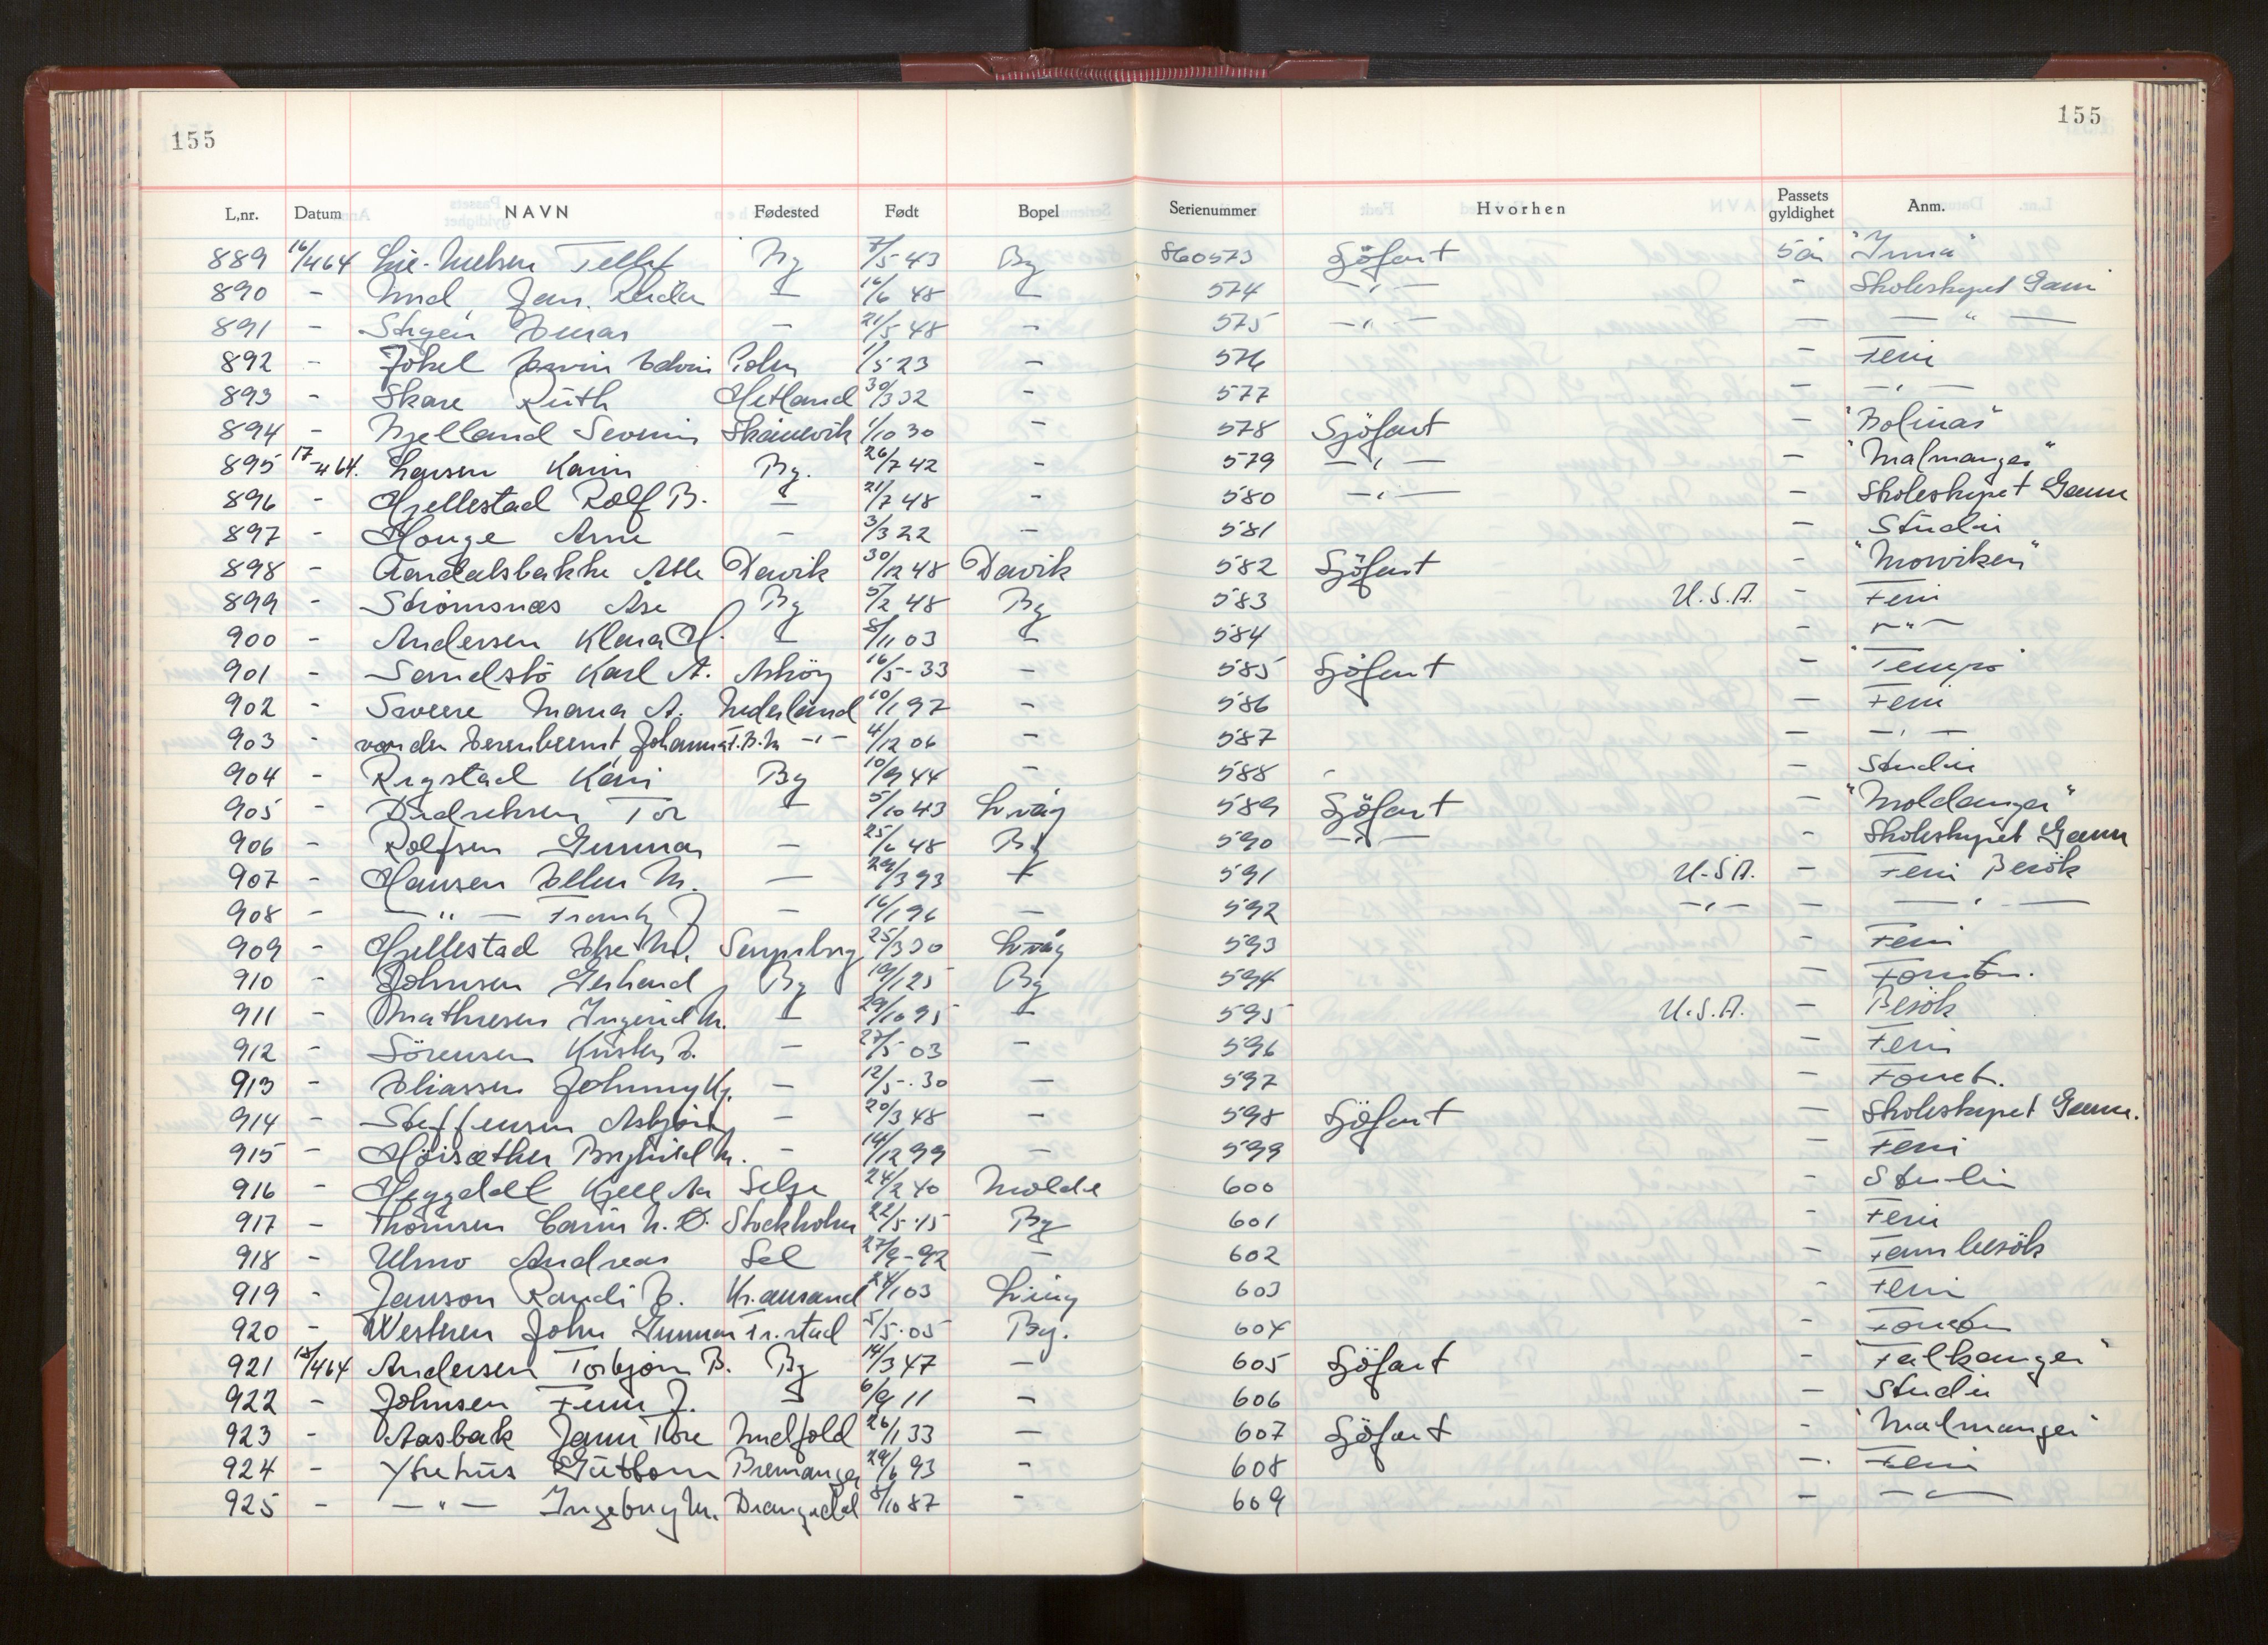 155 155
L,nr. Datum NAVN Fødested Født Bopel Serienummer Hvorhen Passets gyldighet Anm.
889 16/4 64 Lie-Nielsen By 7/5-43 By 860573 Sjöfart 5 år
890 - Jan - 16/6 48 - 574 -"- - Skoleskipet Gann
891 - - 21/5 48 - 575 -"- - -"-
892 - Jökel Edvin 1/5 23 - 576 - Ferie
893 - Skare Ruth Hetland 30/3 32 - 577 - -"-
894 - Bjelland Severin Skånevik 1/10 30 - 578 Sjöfart - "Bolinas"
895 17-4 64. Larsen Karin By. 26/7 42 - 579 -"- - "Malmanger"
896 - Hjellestad Rolf B. - 21/7 48 - 580 -"- - Skoleskipet Gann
897 - Houge Arne - 3/3 22 - 581 - Studier
898 - Aandalsbakke Atle Davik 30/12 48 Davik 582 Sjöfart - "Norviken"
899 - Strömsnæs Åse By 5/2 48 By 583 U.S.A. - Ferie
900 - Andersen Klara H. - 8/11 03 - 584 - -"-
901 - Sandstö Karl A. Asköy 16/5-33 - 585 Sjöfart - "Tempo"
902 - Maria A. Nederland 10/1 97 - 586 - Ferie
903 - van den Johanna F.B.M -"- 4/12 06 - 587 - -"-
904 - Rygstad Kari By 10/9 44 - 588 - Studier
905 - Didriksen Tor - 5/10 43 589 Sjöfart - "Moldanger"
906 - Rolfsen Gunnar - 25/6 48 By 590 -"- - Skoleskipet Gann
907 - Hansen Ellen M. - 29/3 93 - 591 U.S.A. - Ferie Besök
908 - -"- J - 16/1 96 - 592 -"- - -"-
909 - Hjellestad Else M. Sarpsborg 25/3 30 593 - Ferie
910 - Johnsen Gerhard By 19/1 25 By 594 - Forretn.
911 - Mathiesen Ingerid M. - 29/10 95 - 595 U.S.A. - Besök
912 - Sörensen Kirsten E. - 27/5 03 - 596 - Ferie
913 - Eliassen Johnny Kj. - 12/5-30 - 597 - Forret.
914 - Steffensen Asbjörn - 20/3 48 - 598 Sjöfart - Skoleskipet Gann.
915 - Höisæther Borghild M. - 14/12 99 - 599 - Ferie
916 - Heggdal Kjell Selje 24/2 40 Molde 600 - Studie
917 - Thomsen Carin M. O. Stockholm 22/5-15 By 601 - Ferie
918 - Ulmo Andreas Sel 27/9-92 - 602 - Fam besök
919 - Janson Randi E. Kr.ansand 24/1 03 603 - Ferie
920 - Westnen John Gunnar Fr.stad 5/5-05 By. 604 - Forretn
921 18/4 64 Andersen Torbjørn B. By 14/3 47 - 605 Sjöfart - "Falkanger"
922 - Johnsen Finn J. - 6/9 11 - 606 - Studie
923 - Aasbak Jann Tore 26/1 33 - 607 Sjöfart - "Malmanger"
924 - Ytrehus Guttorm Bremanger 29/6 93 - 608 - Ferie
925 - -"- Ingeborg M. Drangedal 8/10 87 - 609 - -"-